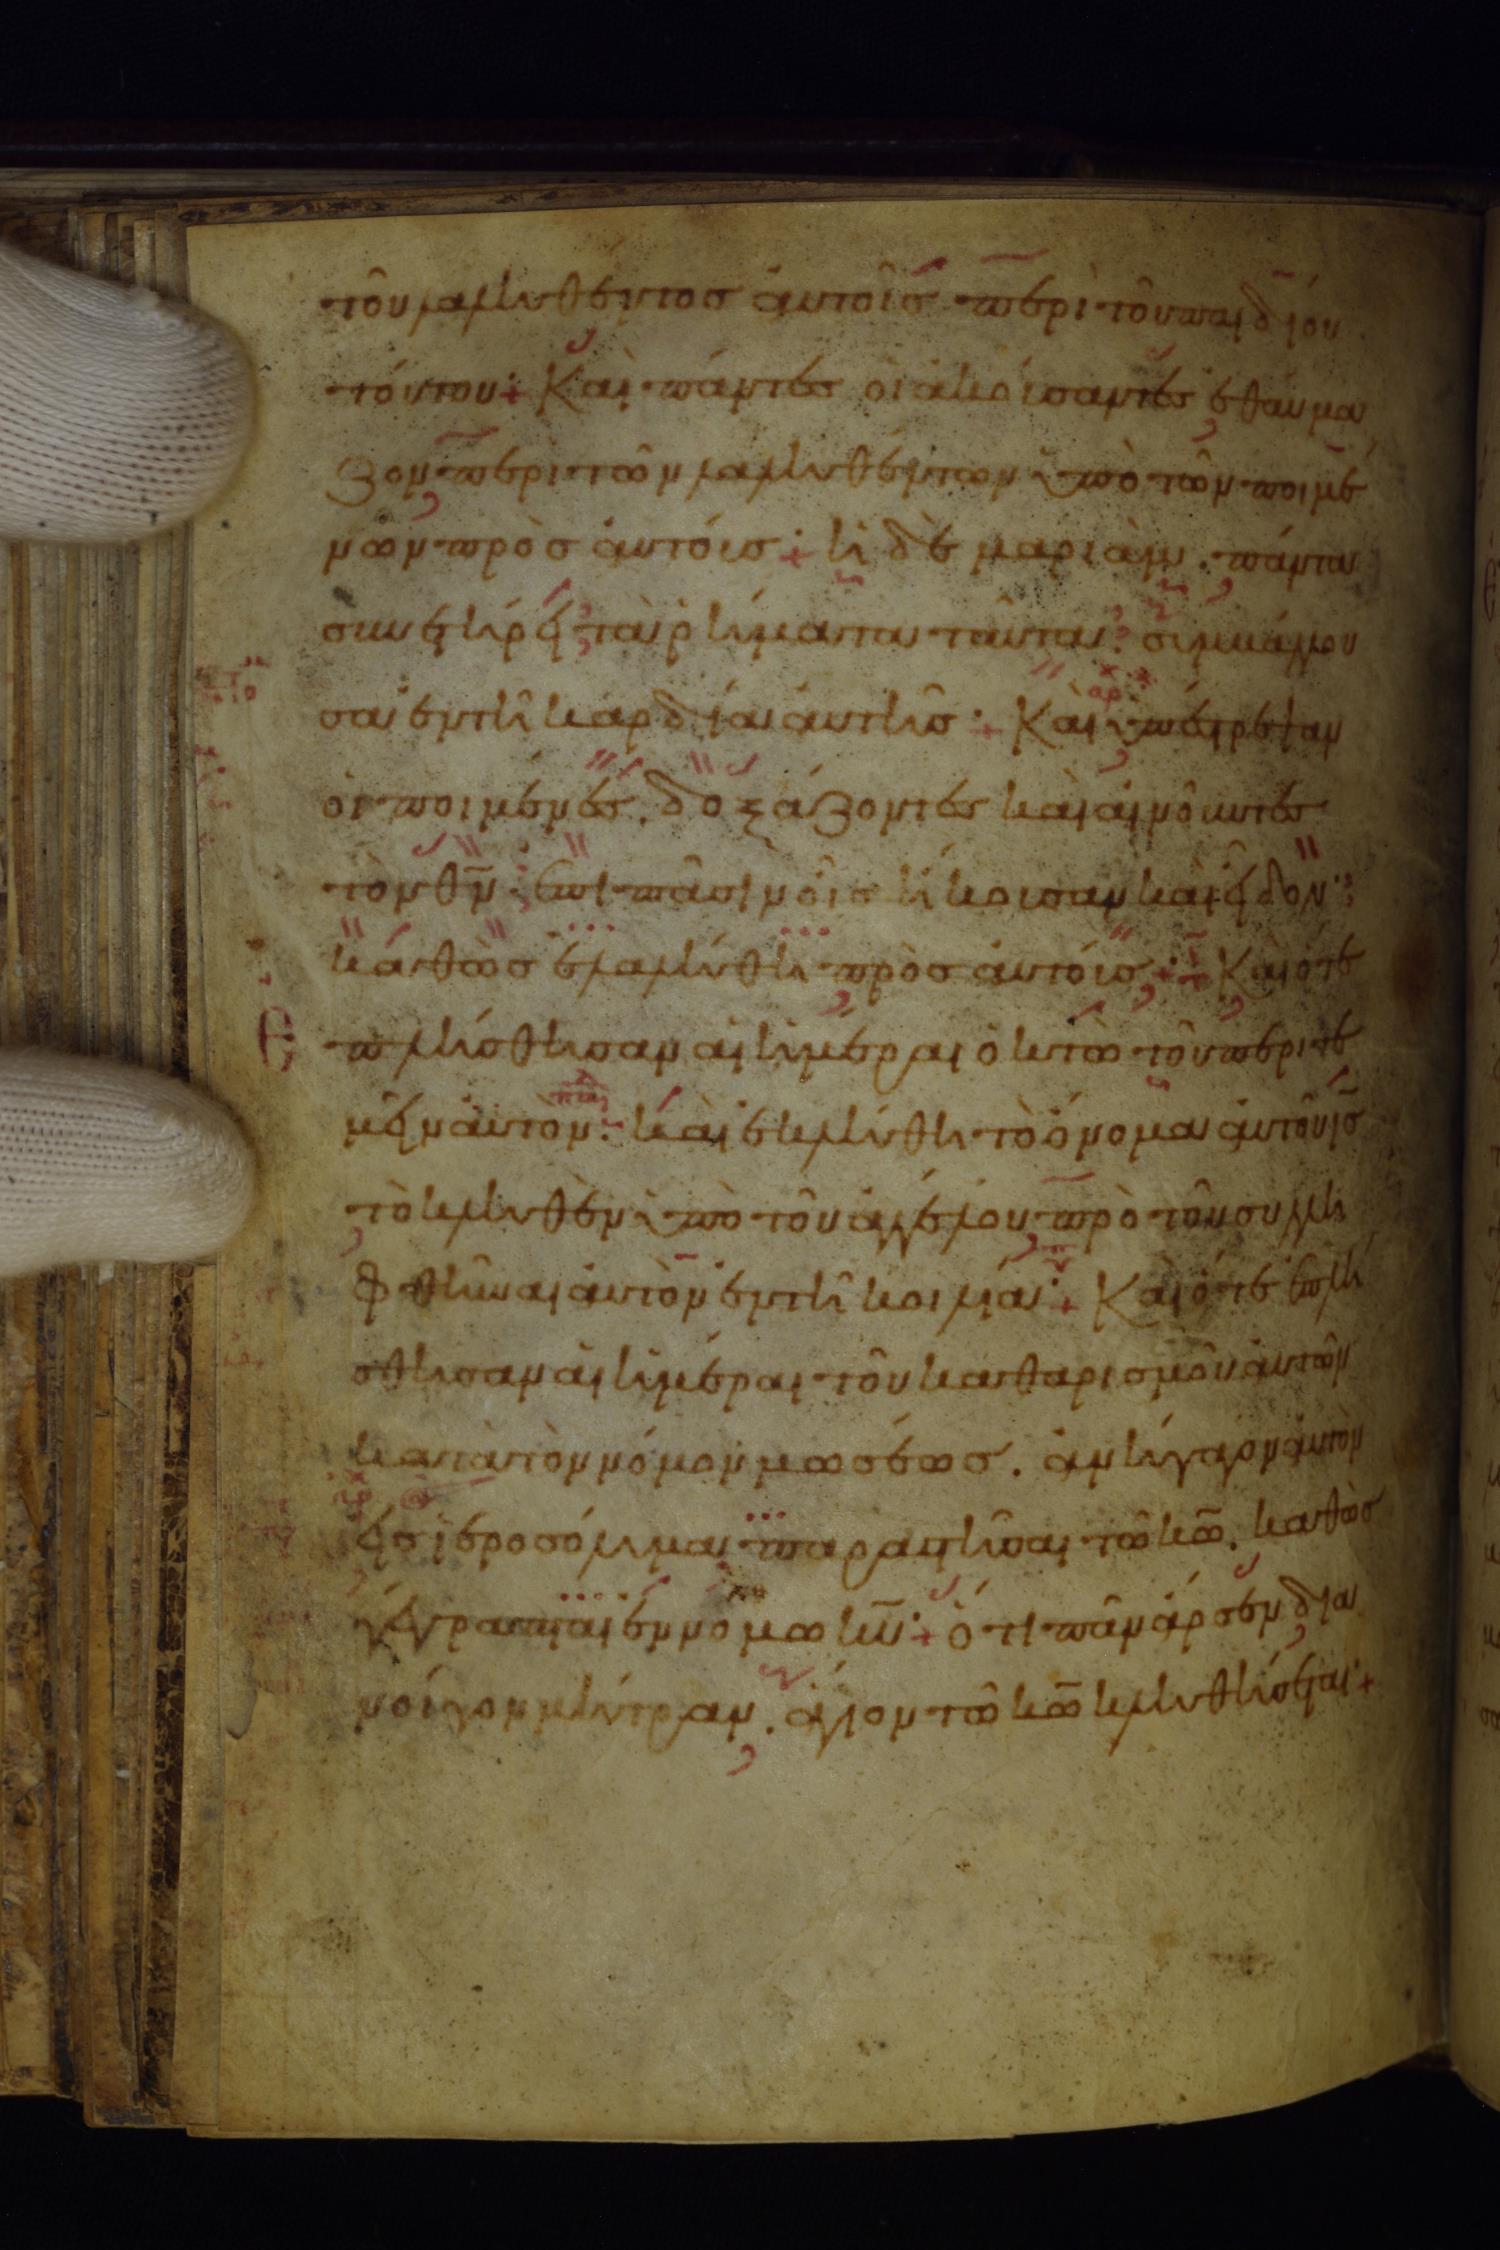 τοῦ λαληθέντος ἀυτοῖς περὶ τοῦ παιδίου
τόυτου· Καὶ πάντες οἱ ἀκόυσαντες ἐθαύμα
ζον περι τῶν λαληθέντων ὑπὸ τῶν ποιμέ
νων πρὸς ἀυτόυς· ἡ δὲ μαριὰμ. πάντα
συνετήρει τὰ ρήματα ταῦτα· συμβάλλου
σα ἐν τῆ καρδία ἀυτῆς· Καὶ ὑπέστρεψαν
ὁι ποιμένες. δοξάζοντες καὶ αἰνοῦντες
τὸν θν̄· ἐπὶ πᾶσιν ὁῖς ἤκουσαν καὶ εἶδον·
κάθὼς ἐλαλήθη πρὸς ἀυτόυς· Καὶ ὅτε
ἐπλήσθησαν αἱ ἡμέραι ὀκτὼ τοῦ περιτε
μεῖν ἀυτὸν· καὶ ἐκλήθη τὸ ὄνομα ἀυτοῦ ις̄
τὸ κληθὲν ὑπὸ τοῦ ἀγγέλου πρὸ τοῦ συλλη
φθῆναι ἀυτὸν ἐν τῆ κοιλία· Καὶ ὅτε ἐπλή
σθησαν αἱ ἡμέραι τοῦ καθαρισμοῦ ἀυτῶν
κατὰ τὸν νόμον μωσέως. ἀνήγαγον ἀυτὸν
εἰς ἱεροσόλυμα παραστῆσαι τῶ κω̄. καθὼς
γέγραπται ἐν νόμω κῡ· ὅτι πᾶν ἄρσεν δια
νοίγον μήτραν. ἅγιον τῶ κω̄ κληθήσεται·